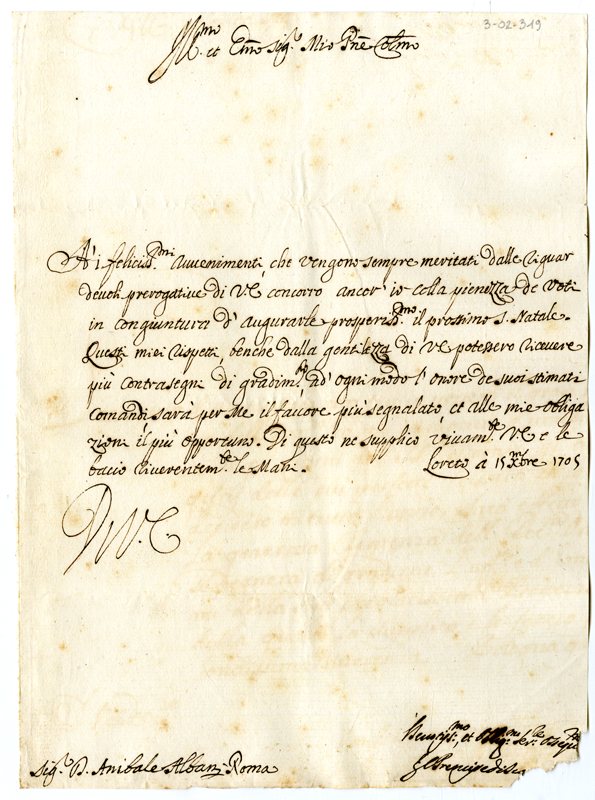 3-02-319
Ill.mo et Emo Sig.r Mio Pne Colmo
A' i feliciss.mi Avvenimenti, che vengono sempre meritati dalle riguar
devoli prerogative di VE, concorro ancor' io colla pienezza de Voti
in congiuntura d' augurarle prosperiss.mo il prossimo S. Natale.
Questi miei rispetti, benche dalla gentilezza di VE potessero ricevere
più contrasegni di gradim.to ad' ogni modo l' onore de suoi stimati
Comandi sarà per Me il favore più segnalato, et alle mie obliga
zioni il più opportuno. Di questo ne supplico vivam.te VE e le
bacio riverentem.te le Mani. Loreto à 15 Xbre 1705
Di V.E.
et
Sig.r D. Anibale Albani Roma